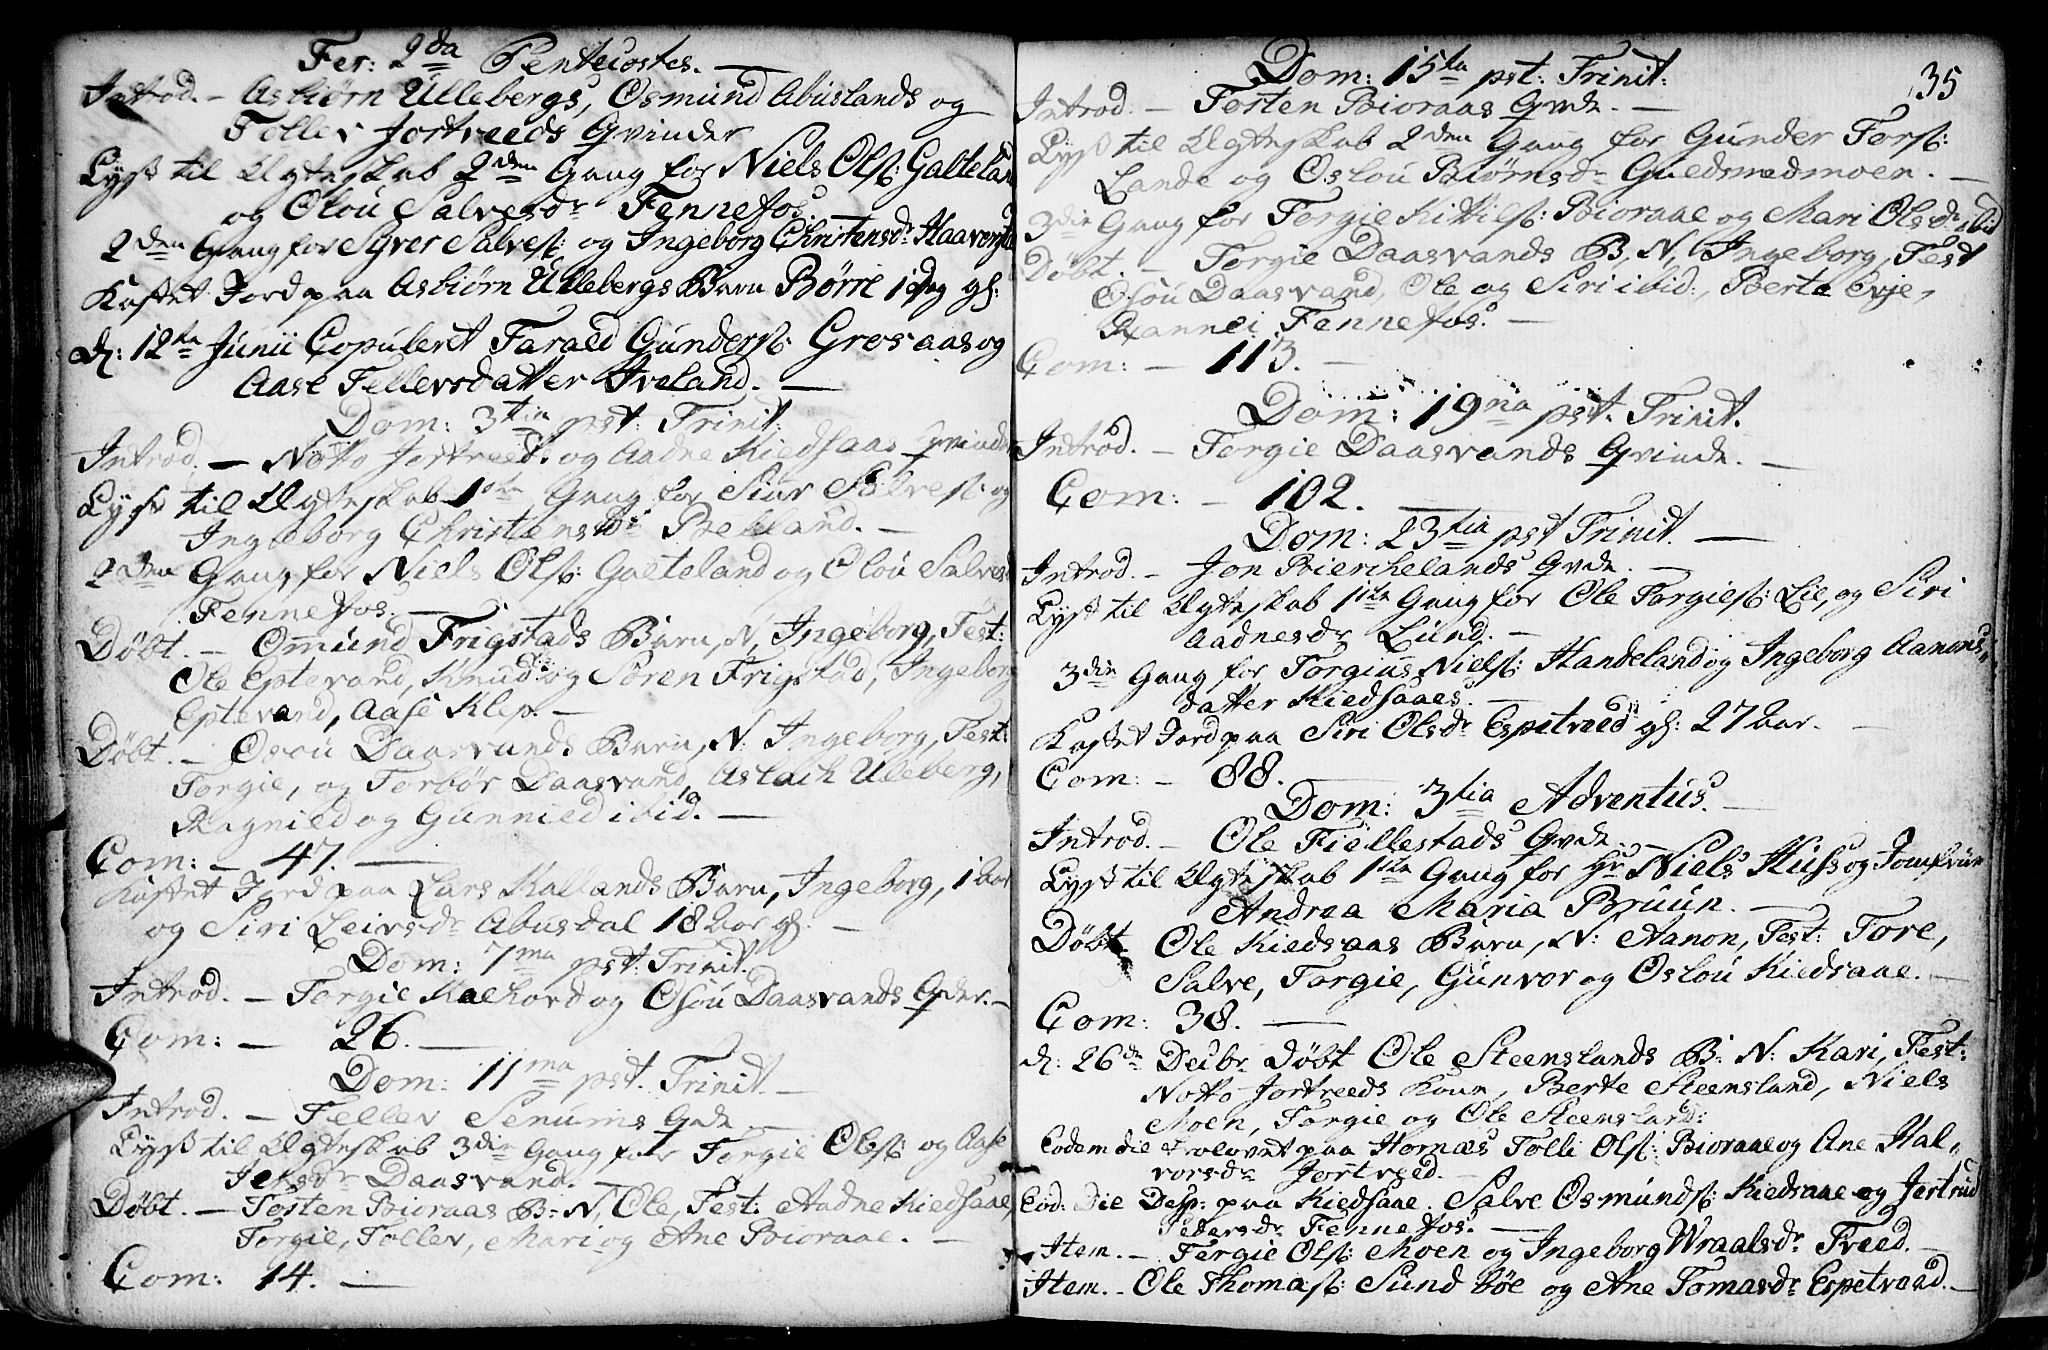 Fer: 2da Pentecostes. —
Introd. – Asbiørn Ullebergs, Osmund Abuslands og
Tollev Jortveeds Qvinder
Lyst til Ægteskab 2den Gang for Niels Ols: Galteland
og Olou Salvesdr Fennefos.
2den Gang for Syver Salves: og Ingeborg Christensdr
Kastet Jord paa Asbiørn Ullebergs Barn Børre 1 dag gl:
d: 12te Junii Copuleret Tarald Gunders: Grosaas og
Aase Tellevsdatter Iveland. —
Dom: 3tia pst: Trinit:
Introd. — Notto Jortveed og Aadne Kiedsaas Qvinder
Lyst til Ægteskab 1ste Gang for Siur Salves: og
Ingeborg Christensdr Belland. —
2den Gang for Niels Ols: Galteland og Olou Salvesd
Fennefos. —
Døbt. – Omund Frigstads Barn, N. Ingeborg, Test:
Ole Eptevand, Knud og Søren Frigstad, Ingeborg
Eptevand, Aase Klep. —
Døbt. – Osou Daasvands Barn, N: Ingeborg, Test:
Torgie, og Torbør Daasvand, Aslach Uleberg,
Ragnild og Gunnild ibid. —
Com: – 47. —
Kastet Jord paa Lars Kallands Barn, Ingeborg, 1 Aar
og Siri Leivsdr Abusdal 18 Aar gl. —
Dom: 7ma pst: Trinit.
Introd. – Torgie og Osou Daasvands Qvder. –
Com: – 26. —
Dom: 11ma pst. Trinit. –
Introd. – Tellev Senums Qvde –
Lyst til Ægteskab 3die Gang for Torgie Ols: og Aase
Jensdr Daasvand. —
Døbt. – Tosten Bioraas B: N. Ole, Test: Aadne Kiedsaae,
Torgie, Tollev, Mari og Ane Bioraae. —
Com: 14. —
35
Dom: 15ta pst: Trinit:
Introd. – Tosten Bioraas Qvde. —
Lyst til Ægteskab 2den Gang for Gunder Tors:
Lande og Oslou Biørnsdr Guldsmedmoen. —
3die Gang for Torgie Kittils: Bioraae og Mari Olsdr ibid
Døbt. – Torgie Daasvands B. N. Ingeborg, Test
Osou Daasvand, Ole og Siri ibid:, Berte Evje,
Rannei Fennefos. —
Com: – 113. —
Dom: 19na pst. Trinit.
Introd. – Torgie Daasvands Qvinde. —
Com: – 102. —
Dom: 23tia pst Trinit. —
Introd. – Jon Bierchelands Qvde. —
Lyst til Ægteskab 1ste Gang for Ole Torgies: Lie, og Siri
Aadnesdr Lund. —
3die Gang for Torgius Niels: Handeland og Ingeborg Aanons,,
datter Kiedsaaes. —
Kastet Jord paa Siri Olsdr Espetveed gl: 27 Aar. —
Com: – 88.
Dom: 3tia Adventus. —
Introd. – Ole Fiellestads Qvde. —
Lyst til Ægteskab 1ste Gang for Hr Niels Huss og Jomfrue
Andrea Maria Bruun. —
Døbt Ole Kiedsaas Barn, N: Aanon, Test: Tore,
Salve, Torgie, Gunvor og Oslou Kiedsaae. —
Com: 38. —
d: 26de Decbr Døbt Ole Steenslands B: N: Kari, Test:
Notto Jortveeds Kone, Berte Steensland, Niels
Moen, Torgie og Ole Steensland:
Eodem die Trolovet paa Hornæs Tolli Ols: Bioraae og Ane Hal,,
vorsdr Jortveed. —
Eod: Die Desp: paa Kiedsaae Salve Osmunds: Kiedsaae og Jortrud
Petersdr Fennefos. —
Item. – Torgie Ols: Moen og Ingeborg Wraalsdr Tveed. —
Item. – Ole Thomas: Sundbøe og Ane Tomasdr Espetvaad. —